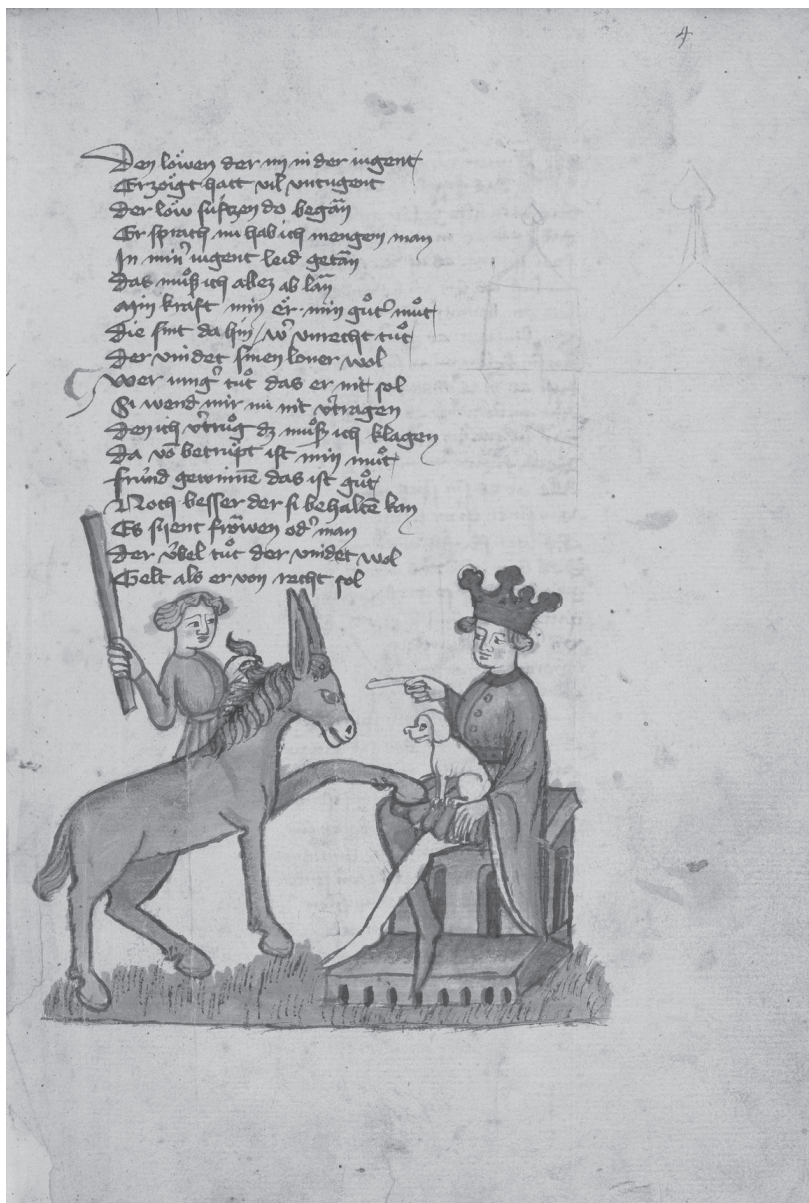 4
Den löwen der im in der iugent
Erzöigt hatt vil vntugent
Der löw súftzen do began̄
Er sprach nu hab ich mengen man
In min̾ iugent leid getan̄
Das můsz ich allez ab lan̄
Min kraft min er min gůt̾ můt
Die sint da hin / w̾ vnrecht tůt
Der vindet sinen loner wol
Wer iung̾ tůt das er nit sol
Si wend mir nu nit v̾tragen
Den ich v̾trůg dz můsz ich klagen
Da vō betrúpt ist min můt
frúnd gewinnē das ist gůt
Noch besser der si behaltē kan
Es sigent frowen od̾ man
Der v́bel tůt der vindet wol
Gelt als er von recht sol